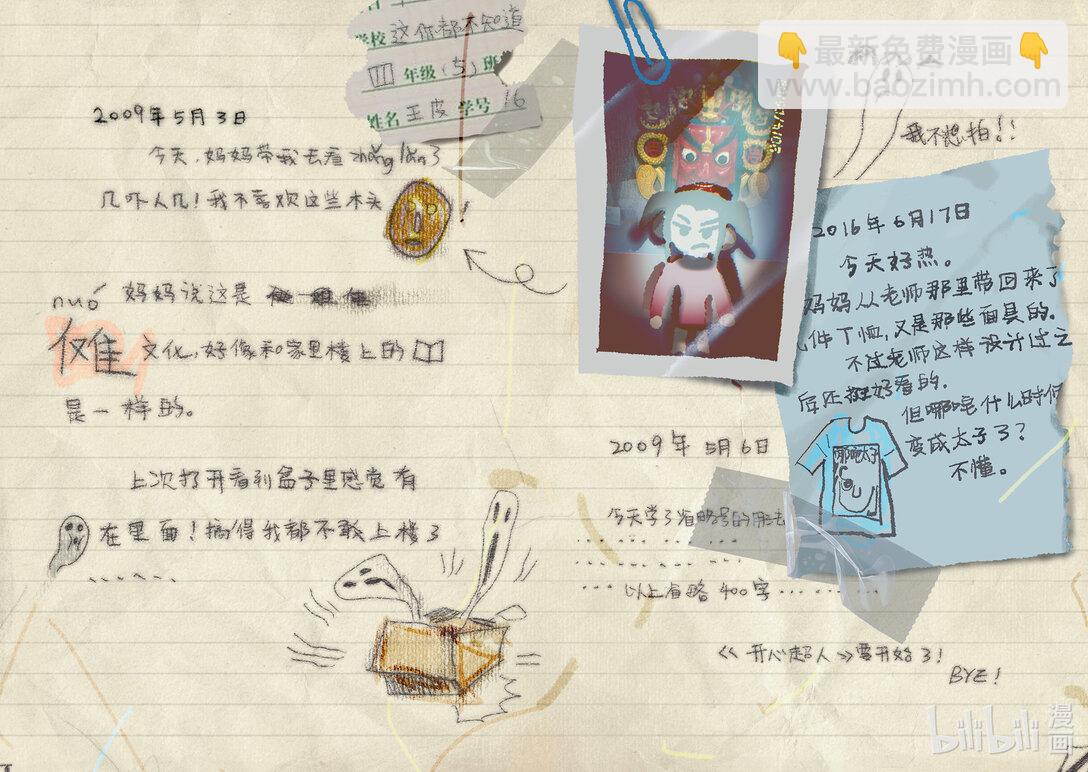 学校 这你都不知道
三 年级(5)班
姓名 王皮 学号 16
2009年5月3日
今天,妈妈带我去看zhǎng lǎn了
几吓人几!我不喜欢这些木头
!
nuó 妈妈说这是
傩 文化,好像和家里楼上的
是一样的。
上次打开看到盒子里感觉有
在里面!搞得我都不敢上楼了
、、、、、、
👇最新免费漫画👇
www.baozimh.com
我不想拍!!
2016年6月17日
今天好热。
妈妈从老师那里带回来了
几件T恤,又是那些面具的.
不过老师这样设计过之
后还挺好看的.
但哪吒什么时候
变成太子了?
不懂。
哪吒太子
2009年5月6日
今天学了省略号的用法
...... 以上省略 400字 ......
《开心超人》要开始了!
BYE!
bilibili 漫画